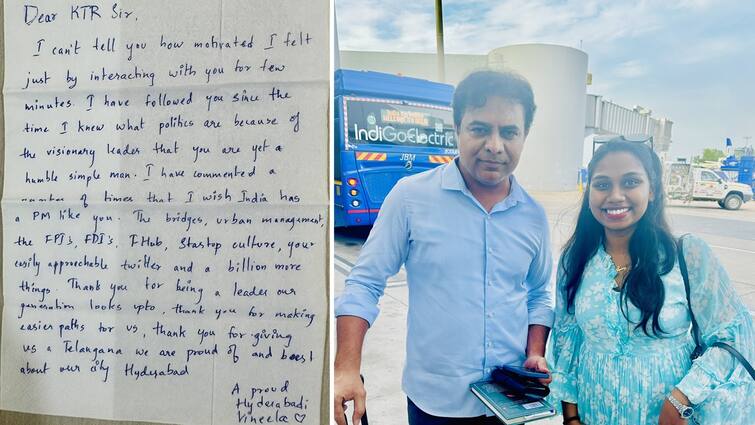 Dear KTR Sir,
I can't tell you how motivated I felt
just by interacting with you for few
minutes. I have followed you since the
time I knew what politics are because of
the visionary leader that you are yet a
humble simple man. I have commented a
number of times that I wish India has
a PM like you. The bridges, urban management,
the FPI's, FDI's, T-Hub, Startup culture, your
easily approchable twitter and a billion more
things. Thank you for being a leader our
generation looks upto, thank you for making
easier paths for us, thank you for giving
us a Telangana we are proud of and boast
about our city Hyderabad
A proud
Hyderabadi
Vineela
IndiGoElectric
JBM